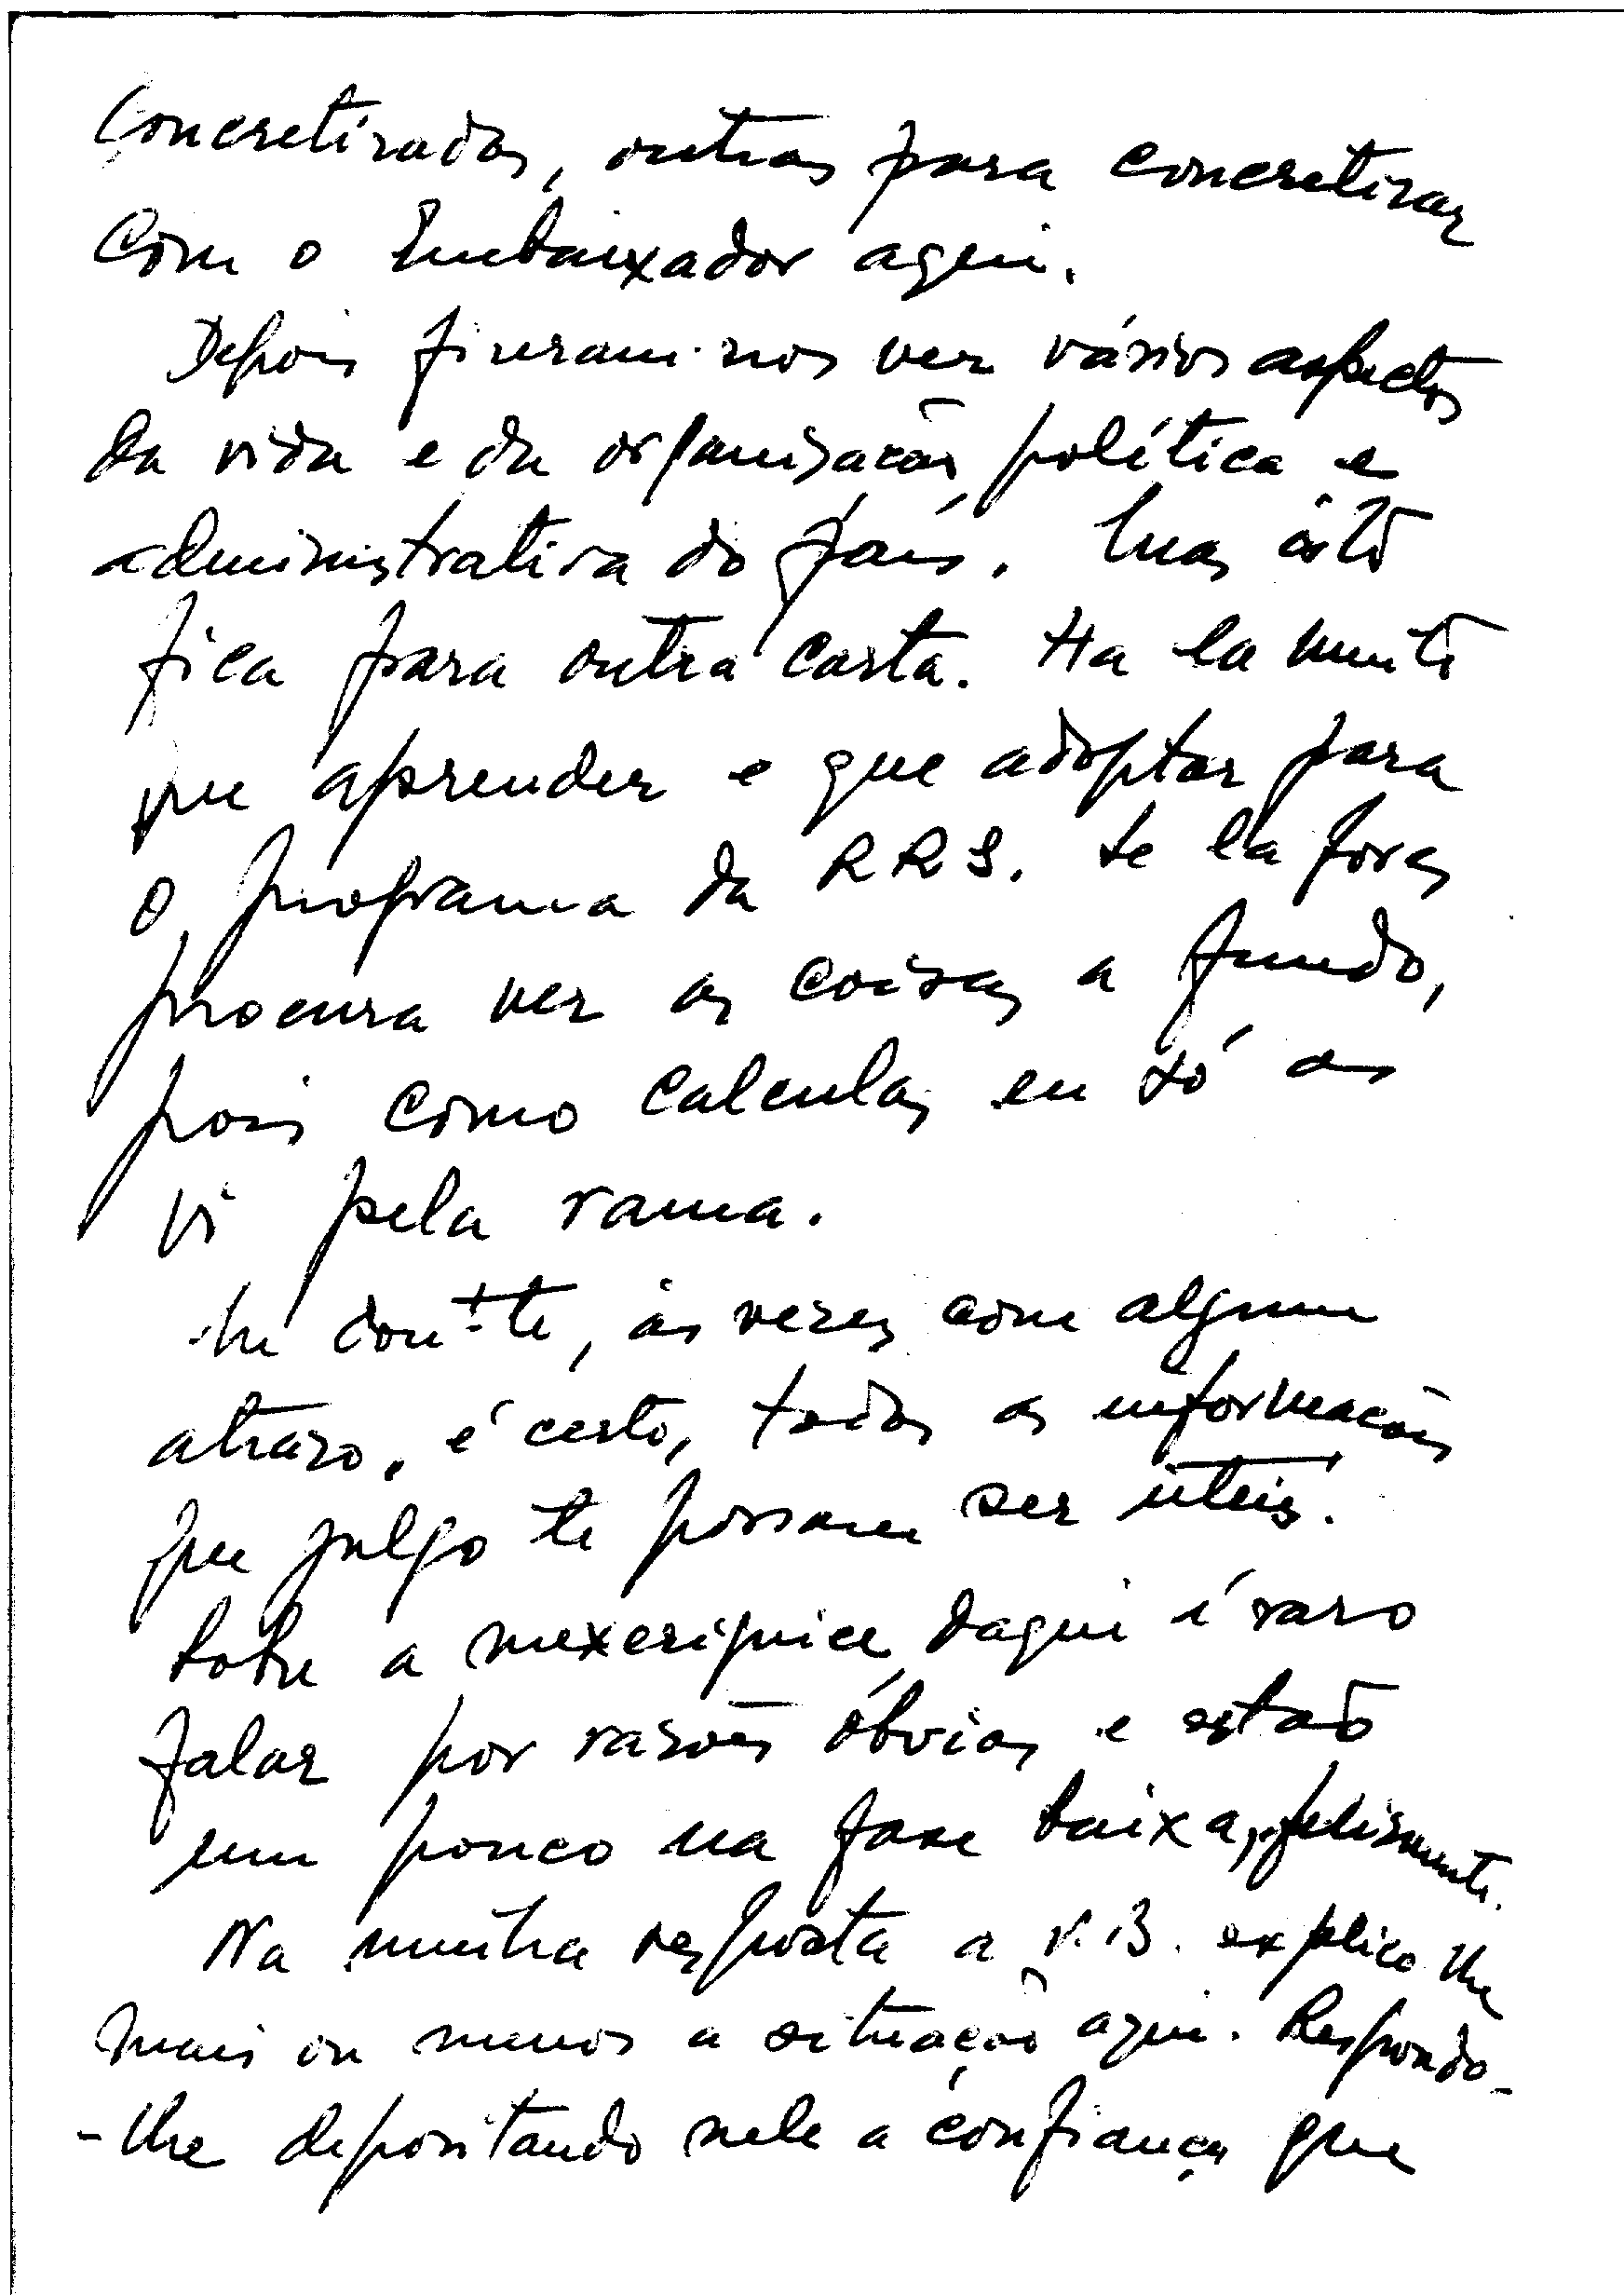 Concretizadas, outras para concretizar
com o Embaixador aqui.
Depois fizeram-nos ver vários aspectos
da vida e da organização política e
administrativa do país. Mas isto
fica para outra carta. Ha la muito
que aprender e que adoptar para
o programa da RRS. Se la fores
procura ver as coisas a fundo,
pois como calculas eu só as
vi pela rama.
dou-te, às vezes com algum
atrazo, é certo, todas as informações
que julgo te possam ser úteis.
Sobre a mexeriquice daqui é raro
falar por razões óbvias e estão
um pouco na fase baixa, felizmente.
Na minha resposta a V.B. explico-lhe
mais ou menos a situação aqui. Respondo-
-lhe depositando nele a confiança que